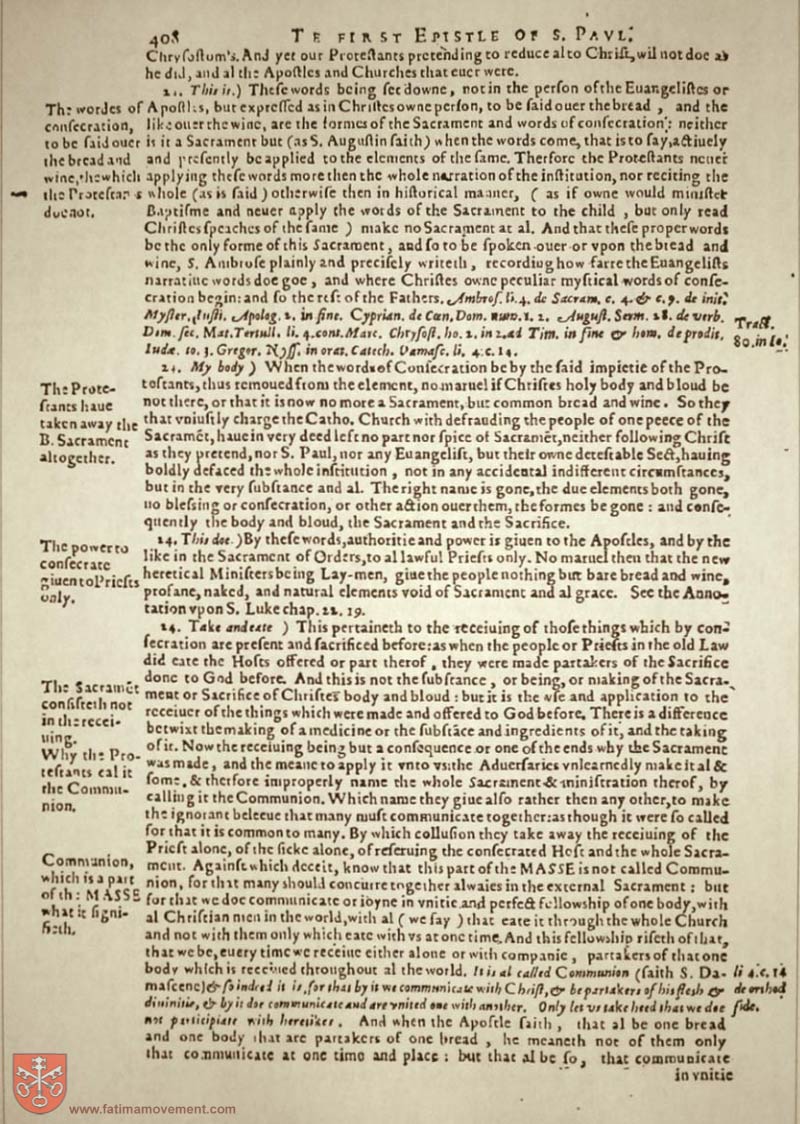 408 TE FIRST EPISTLE OF S. PAVL.
Chrysostum's. And yet our Protestants pretending to reduce al to Christ, wil not doe as
he did, and al the Apostles and Churches that euer were.
This is.) These words being set downe, not in the person of the Euangelistes or
The wordes of
consecration,
to be said ouer
the bread and
wine, the which
the Protestants
doe not.
Apostles, but expressed as in Christes owne person, to be said ouer the bread, and the
like ouer the wine, are the formes of the Sacrament and words of consecration: neither
is it a Sacrament but (as S. Augustin saith) when the words come, that is to say, actiuely
and presently be applied to the elements of the same. Therfore the Protestants neuer
applying these words more then the whole narration of the institution, nor reciting the
whole (as is said) otherwise then in historical manner, (as if owne would minister
Baptisme and neuer apply the words of the Sacrament to the child, but only read
Christes speaches of the same) make no Sacrament at al. And that these proper words
be the only forme of this Sacrament, and so to be spoken ouer or vpon the bread and
wine, S. Ambrose plainly and precisely writeth, recording how farre the Euangelists
narratiue words doe goe, and where Christes owne peculiar mystical words of conse-
cration begin: and so the rest of the Fathers. Ambros. li. 4. de Sacram. c. 4. & c. 9. de init.
Myster. Justi. Apolog. 2. in fine. Cyprian. de Cœn. Dom. num. 1. 2. August. Serm. 28. de verb.
Dom. sec. Mat. Tertull. li. 4. cont. Marc. Chrysost. ho. 2. in 2. ad Tim. in fine & hom. de prodit.
Iudæ. to. 3. Gregor. Nyss. in orat. Catech. Damasc. li. 4. c. 14.
Tract.
80. in Io.
My body) When the words of Consecration be by the said impietie of the Pro-
testants, thus remoued from the element, no maruel if Christes holy body and bloud be
not there, or that it is now no more a Sacrament, but common bread and wine. So they
that vniustly charge the Catho. Church with defrauding the people of one peece of the
Sacramēt, haue in very deed left no part nor spice of Sacramēt, neither following Christ
as they pretend, nor S. Paul, nor any Euangelist, but their owne detestable Sect, hauing
boldly defaced the whole institution, not in any accidental indifferent circumstances,
but in the very substance and al. The right name is gone, the due elements both gone,
no blessing or consecration, or other action ouer them, the formes be gone: and conse-
quently the body and bloud, the Sacrament and the Sacrifice.
The Prote-
stants haue
taken away the
B. Sacrament
altogether.
24. This doe.) By these words, authoritie and power is giuen to the Apostles, and by the
like in the Sacrament of Orders, to al lawful Priests only. No maruel then that the new
heretical Ministers being Lay-men, giue the people nothing but bare bread and wine,
profane, naked, and natural elements void of Sacrament and al grace. See the Anno-
tation vpon S. Luke chap. 22. 19.
The power to
consecrate
giuen to Priests
only.
24. Take and eate) This pertaineth to the receiuing of those things which by con-
secration are present and sacrificed before: as when the people or Priests in the old Law
did eate the Hosts offered or part therof, they were made partakers of the Sacrifice
done to God before. And this is not the substance, or being, or making of the Sacra-
ment or Sacrifice of Christes body and bloud: but it is the vse and application to the
receiuer of the things which were made and offered to God before. There is a difference
betwixt the making of a medicine or the substāce and ingredients of it, and the taking
of it. Now the receiuing being but a consequence or one of the ends why the Sacrament
was made, and the meane to apply it vnto vs: the Aduersaries vnlearnedly make it al &
some, & therfore improperly name the whole Sacrament & ministration therof, by
calling it the Communion. Which name they giue also rather then any other, to make
the ignorant beleeue that many must communicate together: as though it were so called
for that it is common to many. By which collusion they take away the receiuing of the
Priest alone, of the sicke alone, of reseruing the consecrated Host and the whole Sacra-
ment. Against which deceit, know that this part of the MASSE is not called Commu-
nion, for that many should concurre together alwaies in the external Sacrament: but
for that we doe communicate or ioyne in vnitie and perfect fellowship of one body, with
al Christian men in the world, with al (we say) that eate it through the whole Church
and not with them only which eate with vs at one time. And this fellowship riseth of that,
that we be, euery time we receiue either alone or with companie, partakers of that one
body which is receiued throughout al the world. It is al called Communion (saith S. Da-
mascene) & so indeed it is, for that by it we communicate with Christ, & be partakers of his flesh &
diuinitie, & by it doe communicate and are vnited one with another. Only let vs take heed that we doe
not participate with heretikes. And when the Apostle saith, that al be one bread
and one body that are partakers of one bread, he meaneth not of them only
that communicate at one time and place: but that al be so, that communicate
in vnitie
The Sacramēt
consisteth not
in the recei-
uing.
Why the Pro-
testants cal it
the Commu-
nion.
Communion,
which is a part
of the MASSE
what it signi-
fieth.
li 4. c. 14
de orthod
fide.
www.fatimamovement.com